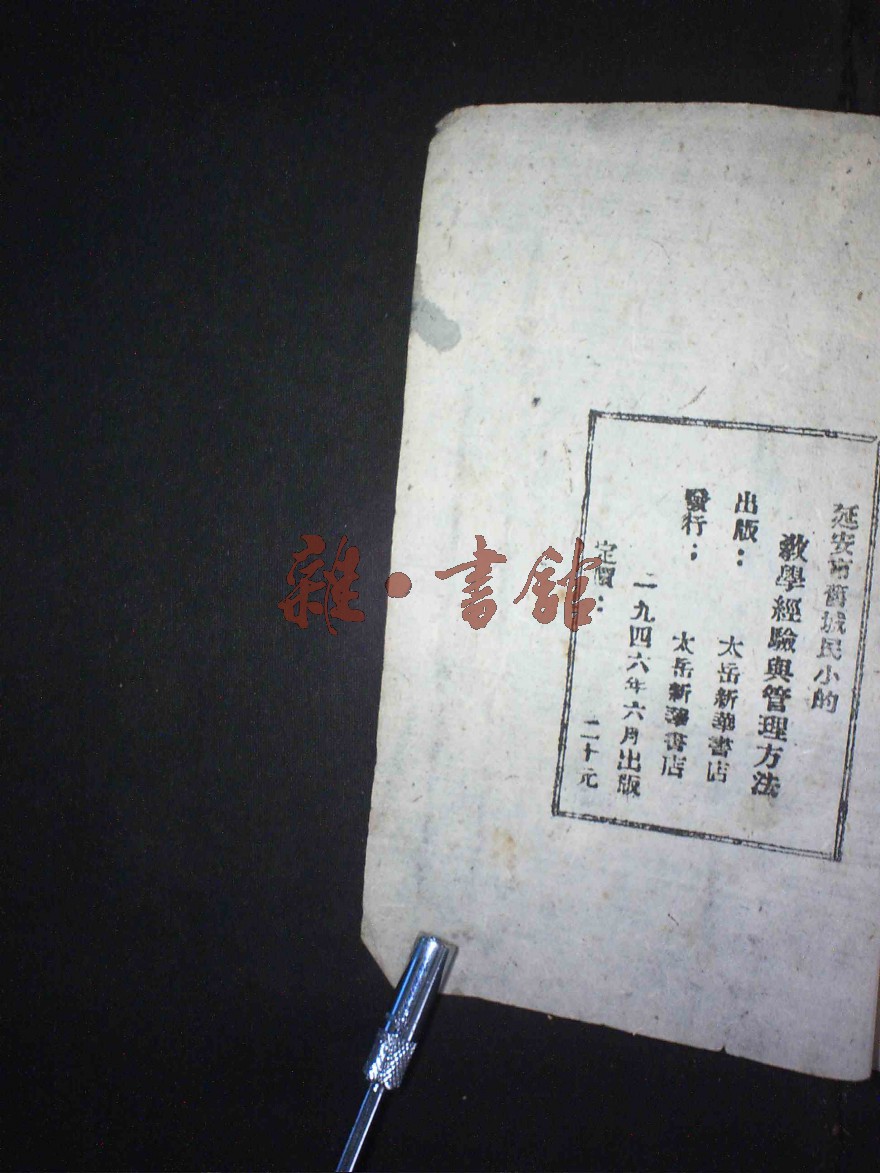 延安市舊城民小的
教學經驗與管理方法
出版：太岳新華書店
發行：太岳新華書店
一九四六年六月出版
定價：二十元
雜·書館